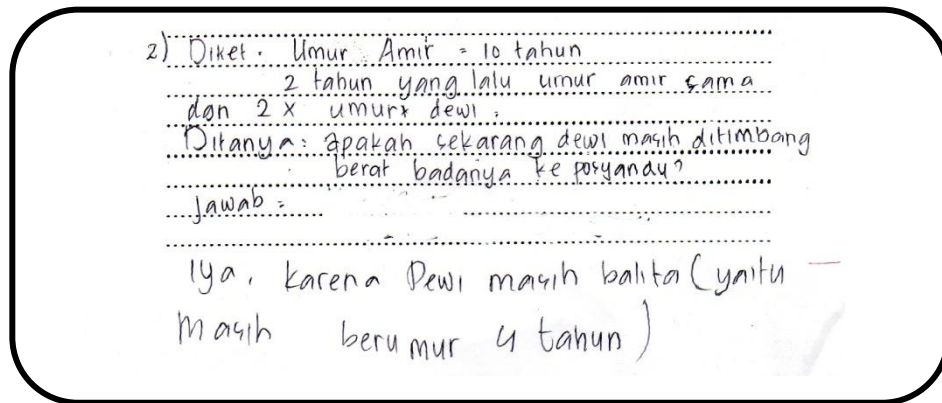 2) Diket. Umur Amir = 10 tahun
2 tahun yang lalu umur amir sama
dgn 2 x umurx dewi.
Ditanya: apakah sekarang dewi masih ditimbang
berat badanya ke posyandu?
Jawab:
Iya, karena Dewi masih balita (yaitu
masih berumur 4 tahun)